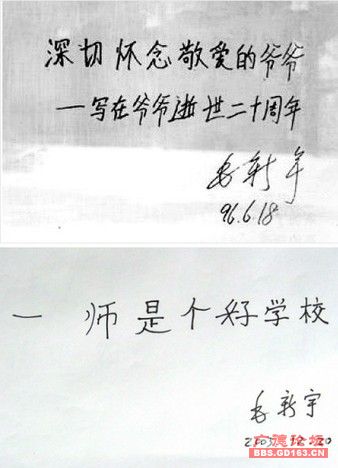 深切怀念敬爱的爷爷
—写在爷爷逝世二十周年
毛新宇
96.6.18
一 师是个好学校
毛新宇
广德论坛
BBS.GD163.CN